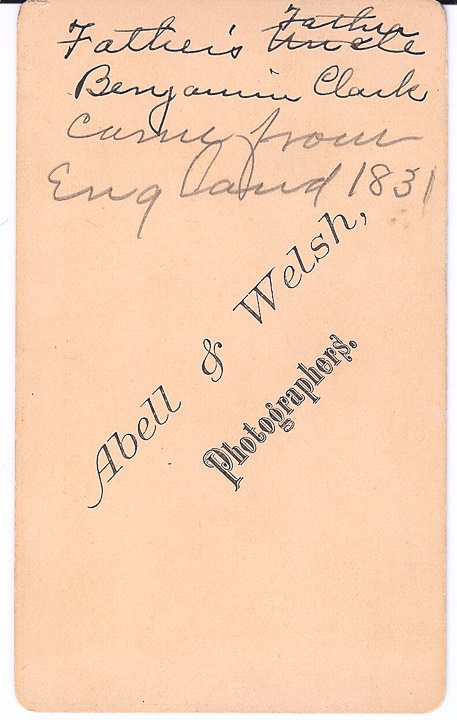 Father
Father's Uncle
Benjamin Clark
Came from
England 1831
Abell & Welsh,
Photographers.